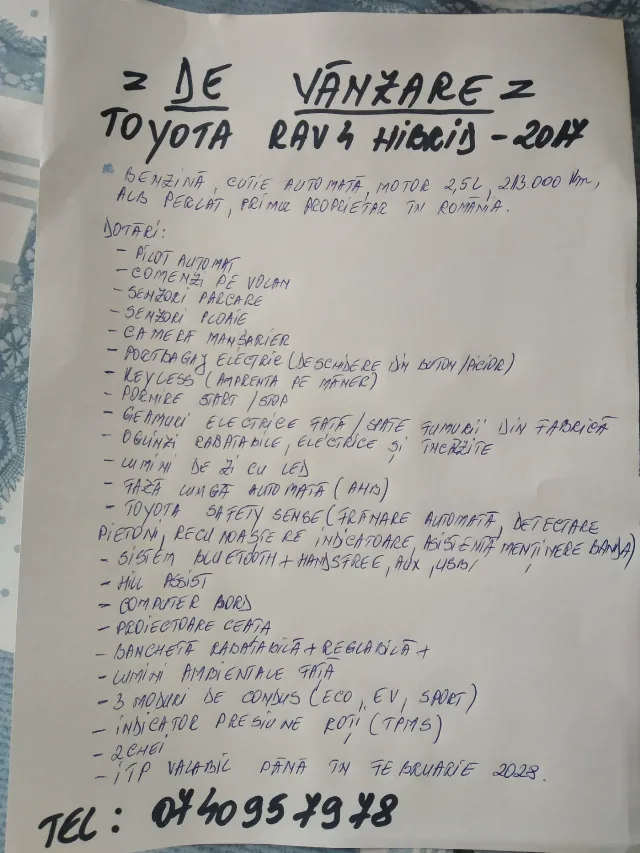 = DE VÂNZARE =
TOYOTA RAV4 HIBRID - 2017
* BENZINĂ, CUTIE AUTOMATĂ, MOTOR 2,5L, 213.000 Km,
ALB PERLAT, PRIMUL PROPRIETAR ÎN ROMÂNIA.
DOTĂRI:
- PILOT AUTOMAT
- COMENZI PE VOLAN
- SENZORI PARCARE
- SENZORI PLOAIE
- CAMERĂ MANȘARIER
- PORTBAGAJ ELECTRIC (DESCHIDERE DIN BUTON/PICIOR)
- KEYLESS (AMPRENTA PE MÂNER)
- PORNIRE START/STOP
- GEAMURI ELECTRICE FAȚĂ/SPATE FUMURII DIN FABRICĂ
- OGLINZI RABATABILE, ELECTRICE ȘI ÎNCĂLZITE
- LUMINI DE ZI CU LED
- FAZĂ LUNGĂ AUTOMATĂ (AHB)
- TOYOTA SAFETY SENSE (FRÂNARE AUTOMATĂ, DETECTARE
PIETONI, RECUNOAȘTERE INDICATOARE, ASISTENȚĂ MENȚINERE BANDĂ)
- SISTEM BLUETOOTH + HANDSFREE, AUX, USB,
- HILL ASSIST
- COMPUTER BORD
- PROIECTOARE CEAȚA
- BANCHETĂ RABATABILĂ + REGLABILĂ +
- LUMINI AMBIENTALE FAȚĂ
- 3 MODURI DE CONDUS (ECO, EV, SPORT)
- INDICATOR PRESIUNE ROȚI (TPMS)
- 2 CHEI
- ITP VALABIL PÂNĂ ÎN FEBRUARIE 2028.
TEL: 0740957978